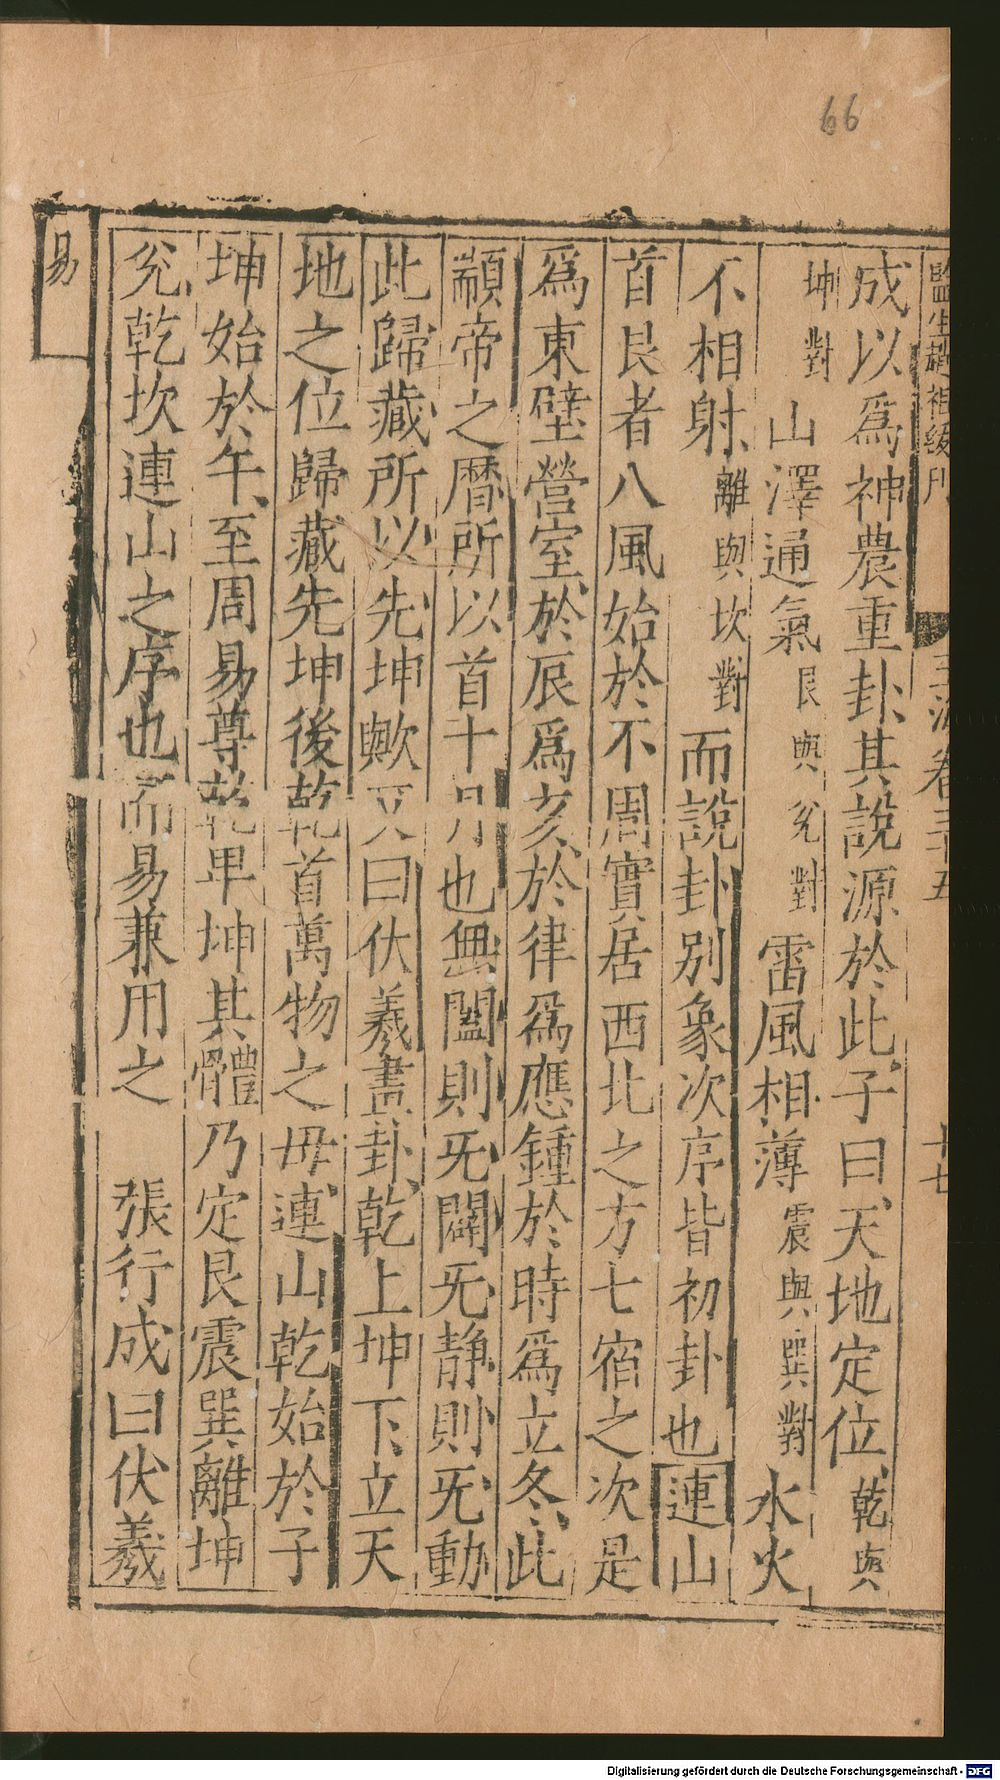 66
成以爲神農重卦其說源於此子曰天地定位乾與
坤對山澤通氣艮與兌對雷風相薄震與巽對水火
不相射離與坎對而說卦別象次序皆初卦也連山
首艮者八風始於不周實居西北之方七宿之次是
爲東壁營室於辰爲亥於律爲應鍾於時爲立冬此
顓帝之曆所以首十月也無闔則旡闢旡静則旡動
此歸藏所以先坤歟又曰伏羲畫卦乾上坤下立天
地之位歸藏先坤後乾首萬物之毋連山乾始於子
坤始於午至周易尊乾卑坤其體乃定艮震巽離坤
兌乾坎連山之序也而易兼用之 張行成曰伏羲
易
Digitalisierung gefördert durch die Deutsche Forschungsgemeinschaft - DFG